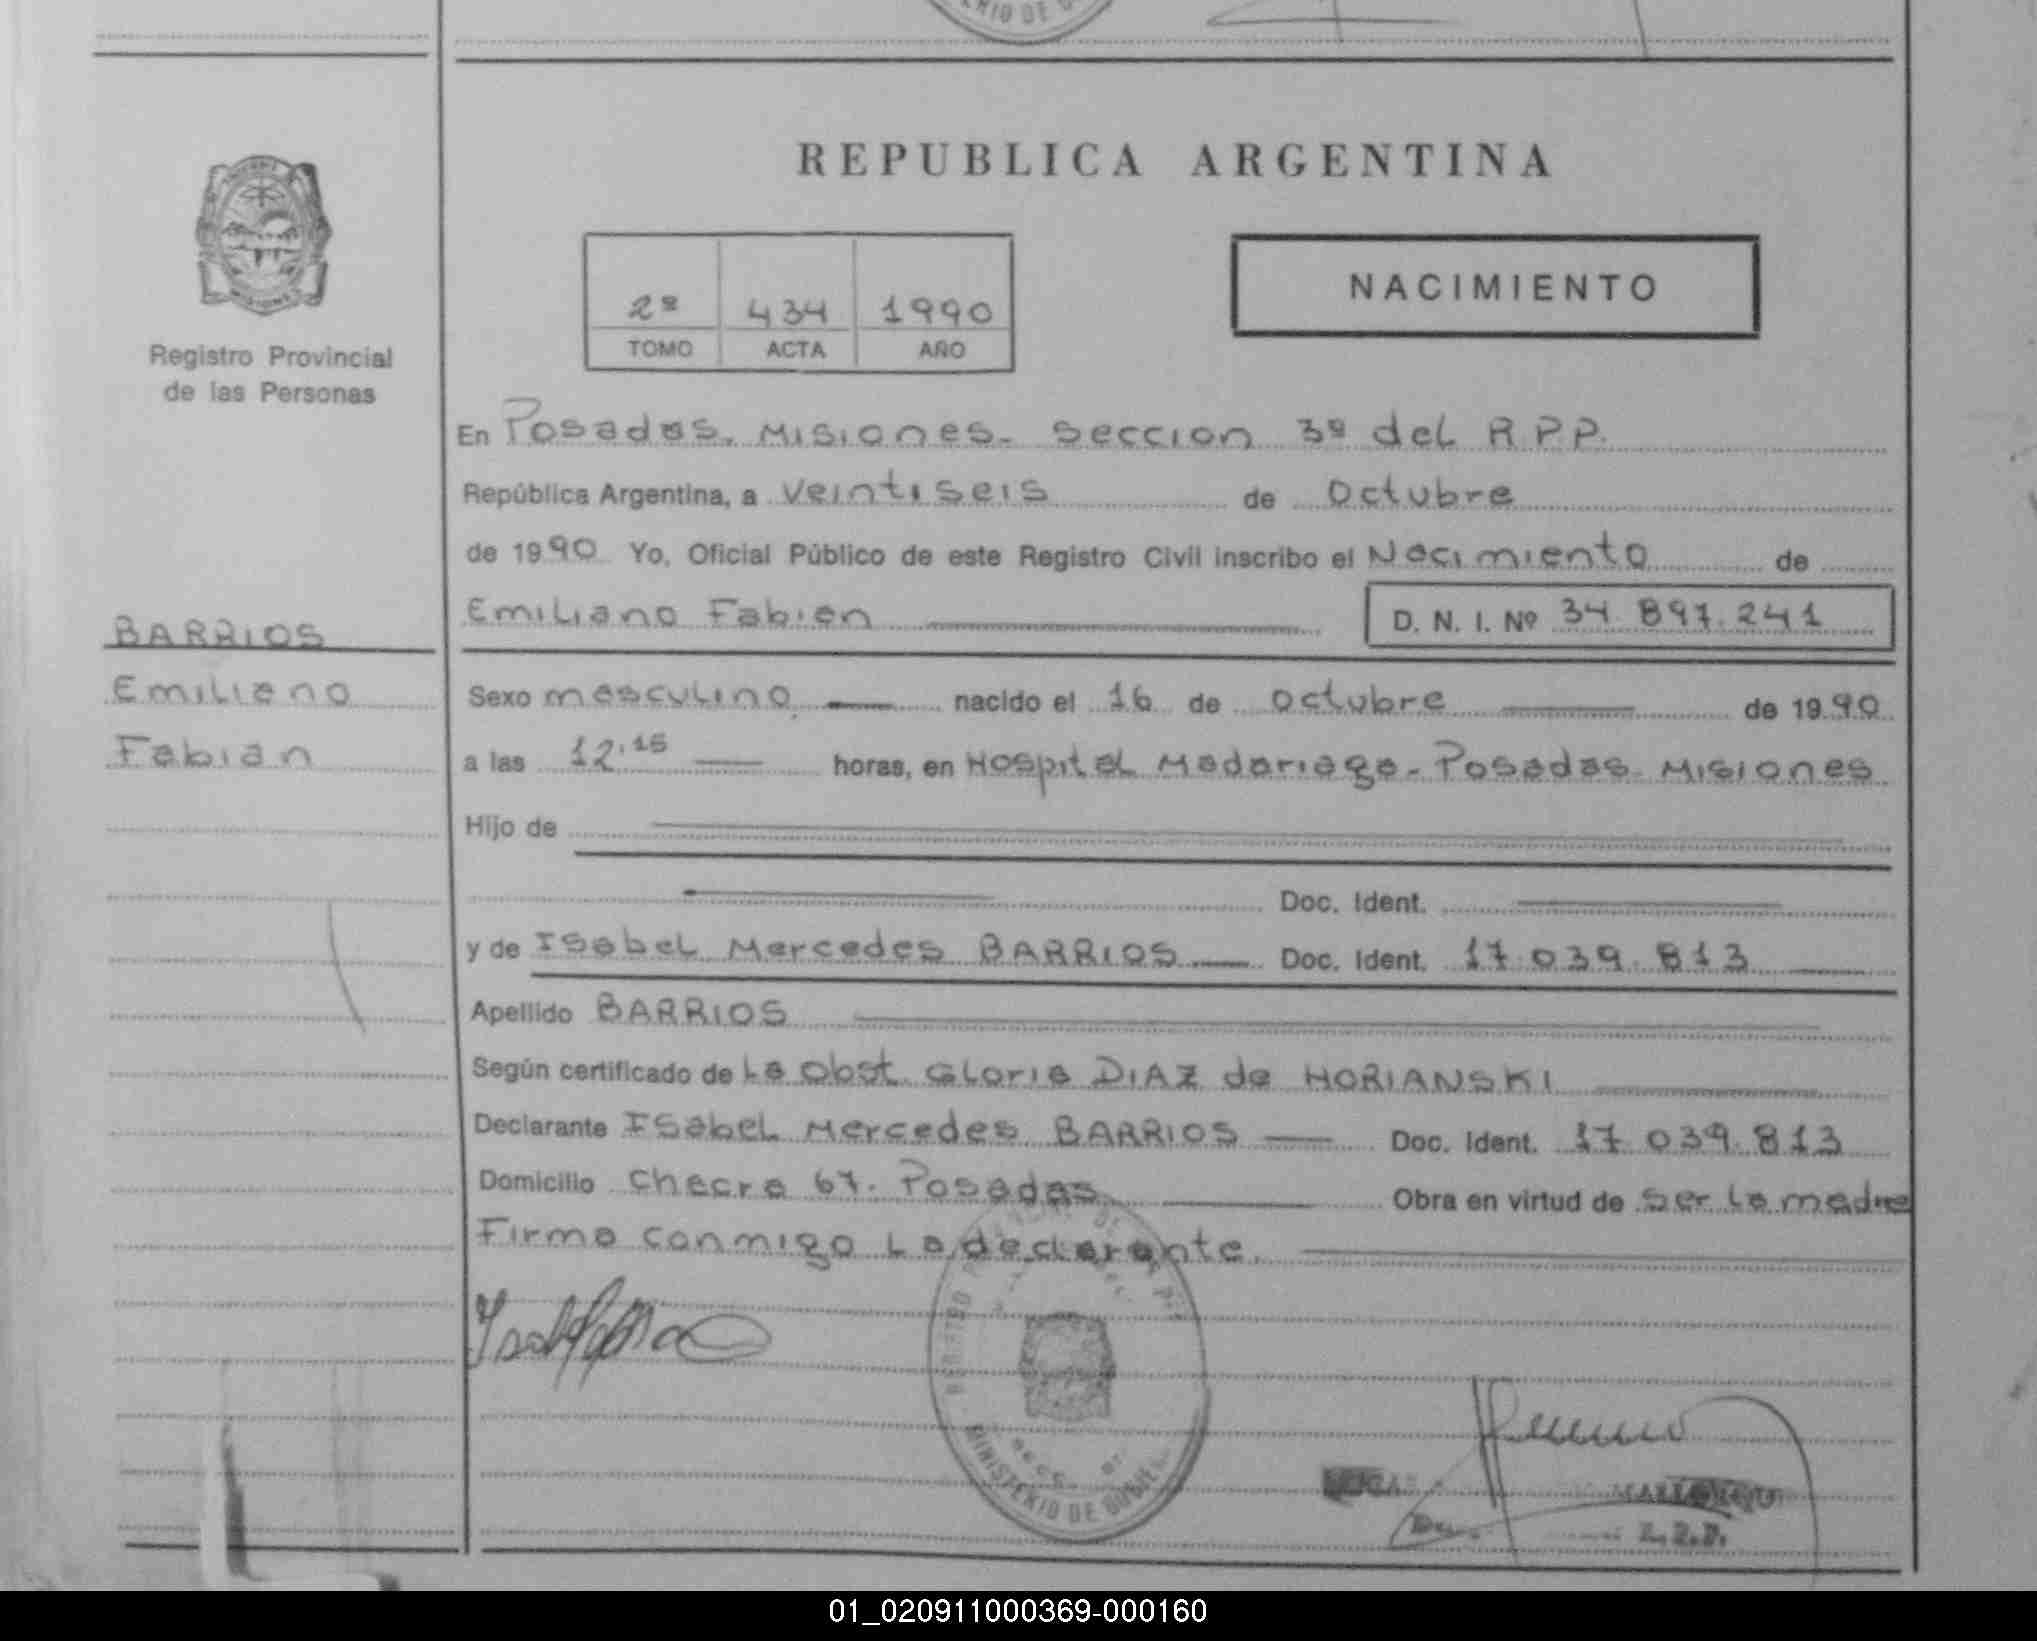 REPUBLICA ARGENTINA
NACIMIENTO
2º 434 1990
TOMO ACTA AÑO
Registro Provincial
de las Personas
En Posadas. Misiones. Seccion 3º del R.P.P.
República Argentina, a veintiseis de Octubre
de 1990 Yo, Oficial Público de este Registro Civil inscribo el Nacimiento de
Emiliano Fabian D. N. I. Nº 34.897.241
BARRIOS
Emiliano
Fabian
Sexo masculino nacido el 16 de octubre de 1990
a las 12.15 horas, en Hospital Madariaga. Posadas. Misiones
Hijo de
Doc. Ident.
y de Isabel Mercedes BARRIOS Doc. Ident. 17.039.813
Apellido BARRIOS
Según certificado de la Obst. Gloria DIAZ de HORIANSKI
Declarante Isabel Mercedes BARRIOS Doc. Ident. 17.039.813
Domicilio Chacra 67. Posadas Obra en virtud de ser la madre
Firma conmigo la declarante.
MINISTERIO DE
01_020911000369-000160